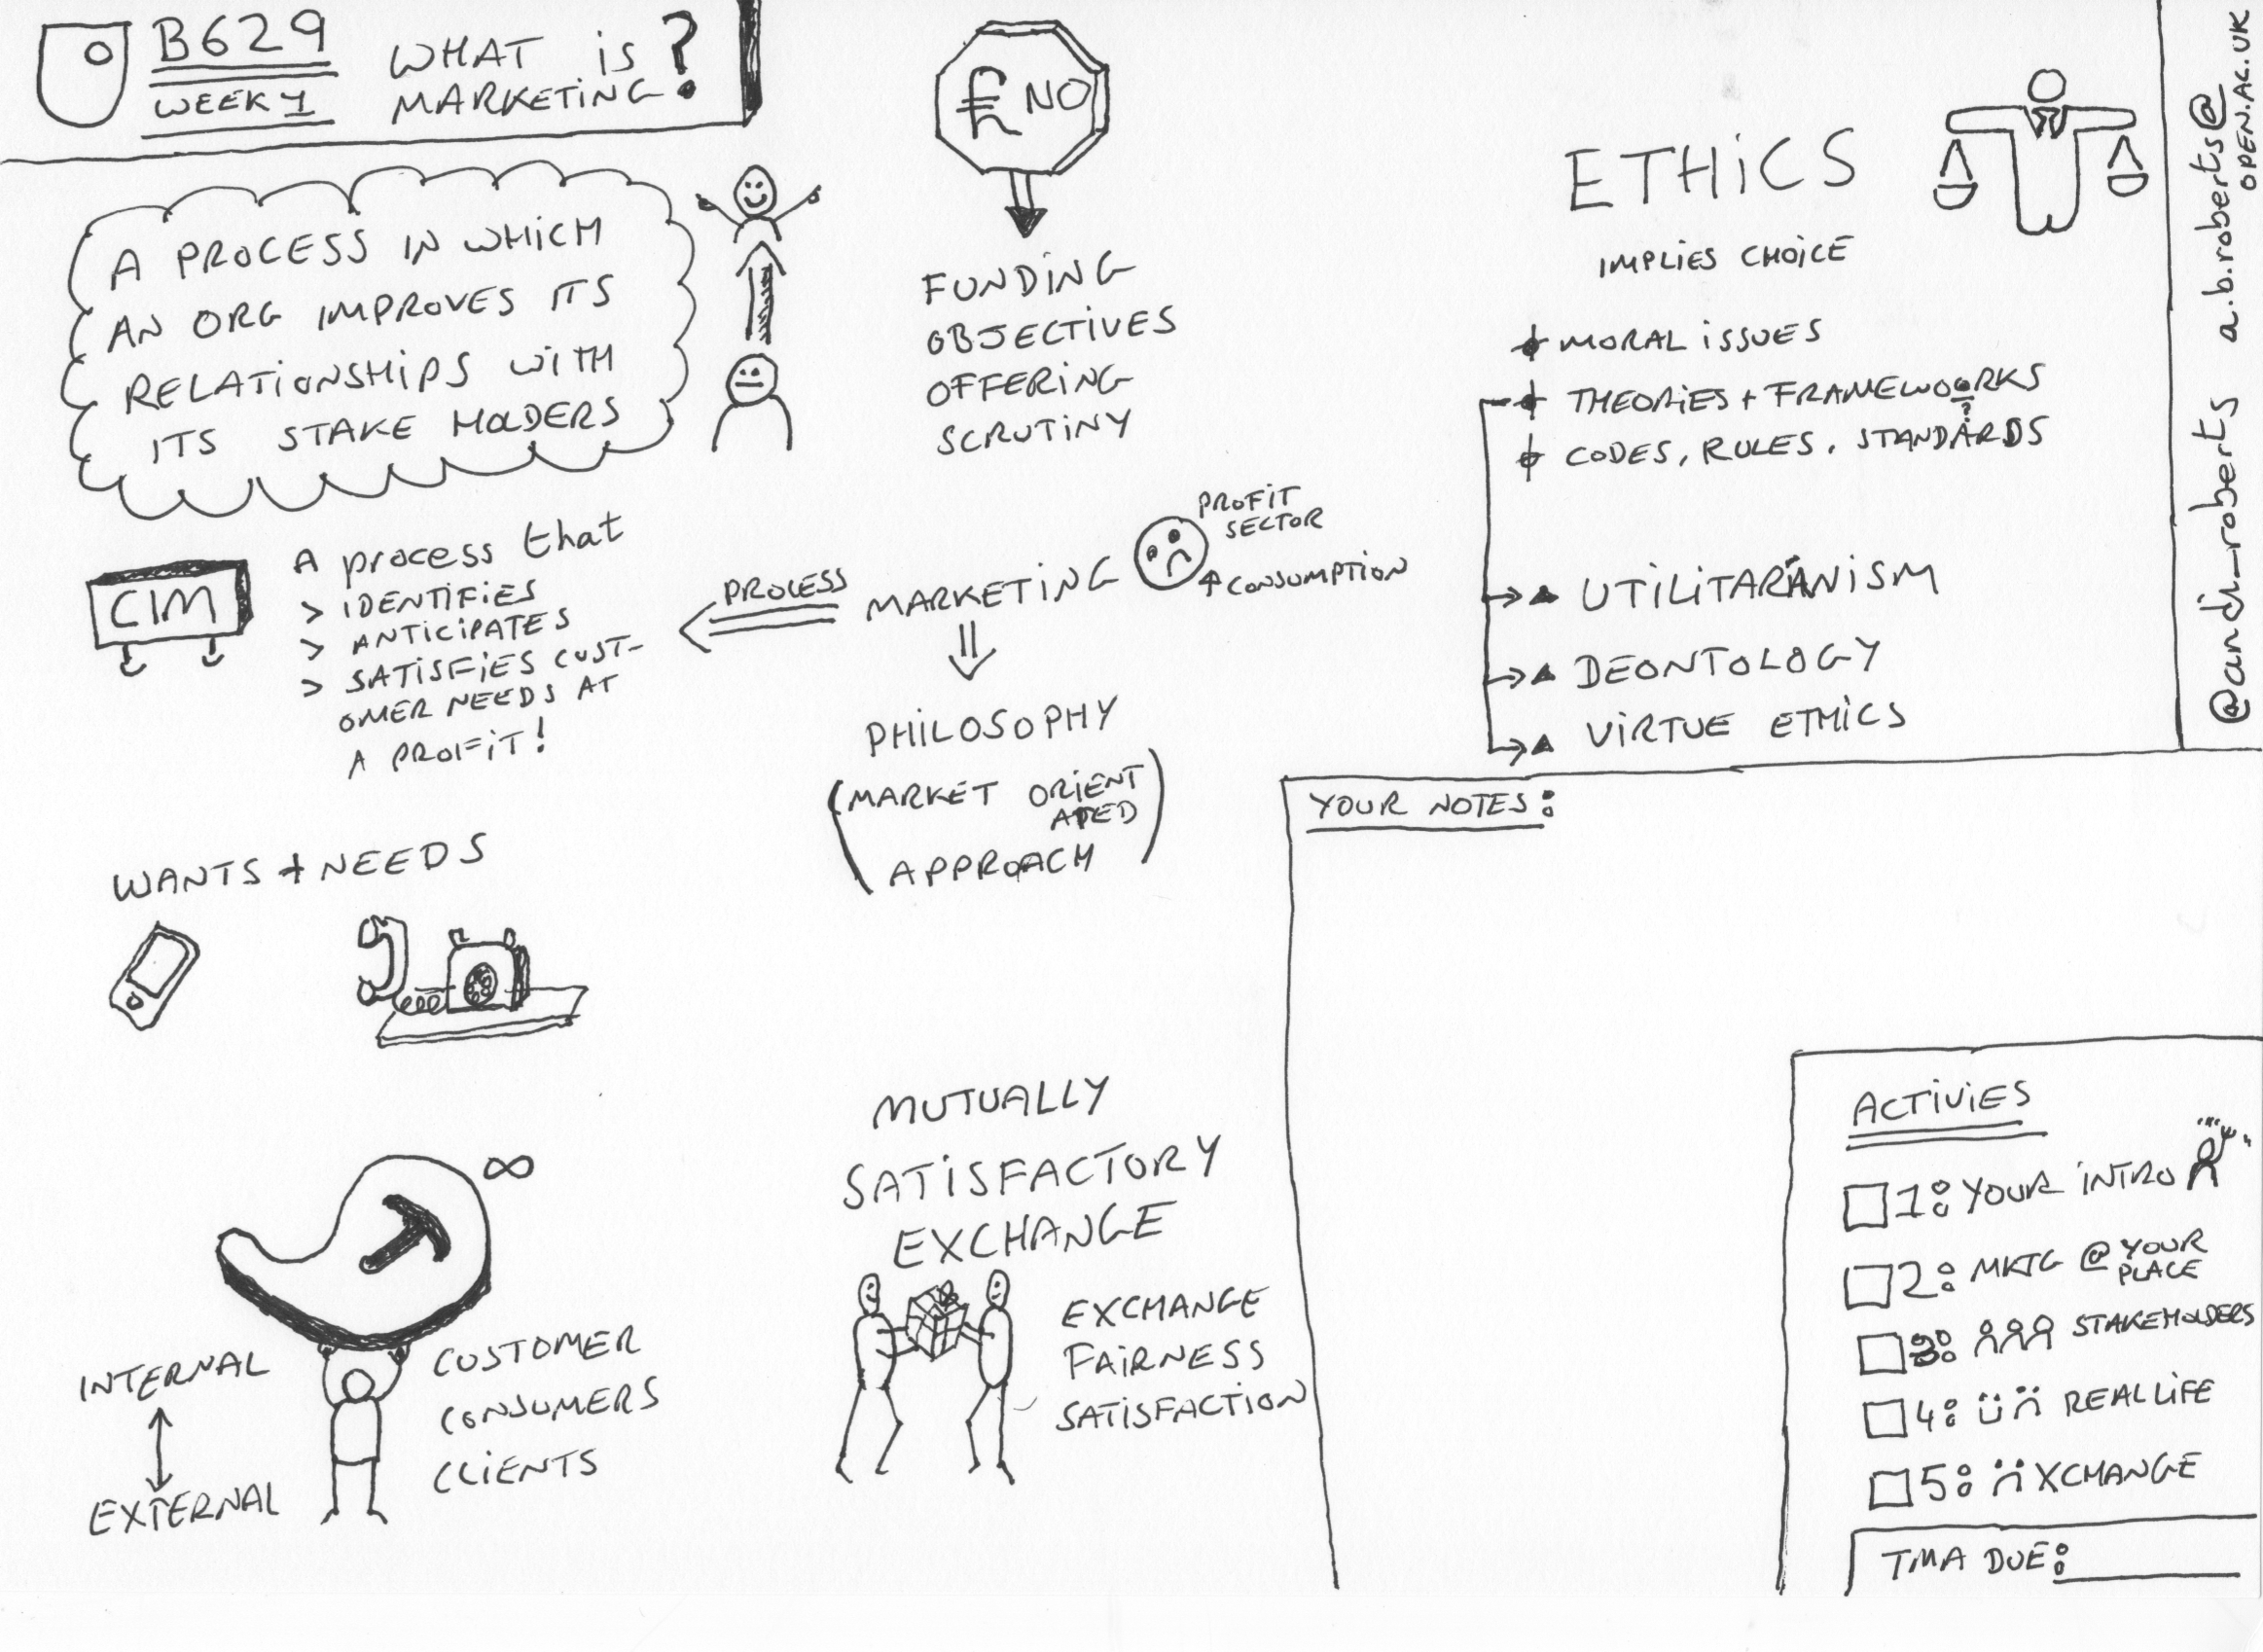 B629
WEEK 1
WHAT is
MARKETiNG?
A PROCESS IN WHiCH
AN ORG IMPROVES ITS
RELATiONSHiPS WiTH
ITS STAKE HOLDERS
CIM
A process that
> iDENTiFiES
> ANTiCiPATES
> SATiSFiES CUST-
OMER NEEDS AT
A PROFiT!
WANTS + NEEDS
∞
INTERNAL
EXTERNAL
CUSTOMER
CONSUMERS
CLiENTS
£ NO
FUNDiNG
OBJECTiVES
OFFERiNG
SCRUTiNY
PROCESS
MARKETiNG
PROFiT
SECTOR
↑CONSUMPTiON
PHiLOSOPHY
(MARKET ORiENT
ATED
APPROACH)
MUTUALLY
SATiSFACTORY
EXCHANGE
EXCHANGE
FAiRNESS
SATiSFACTiON
ETHiCS
IMPLiES CHOiCE
MORAL iSSUES
THEORiES + FRAMEWOORKS
?
CODES, RULES, STANDARDS
UTiLiTARiANiSM
DEONTOLOGY
ViRTUE ETHiCS
@andi_roberts a.b.roberts@
OPEN.AC.UK
YOUR NOTES:
ACTiViES
1: YOUR iNTRO
2: MKTG @ YOUR
PLACE
3: STAKEHOLDERS
4: REAL LiFE
5: XCHANGE
TMA DUE: